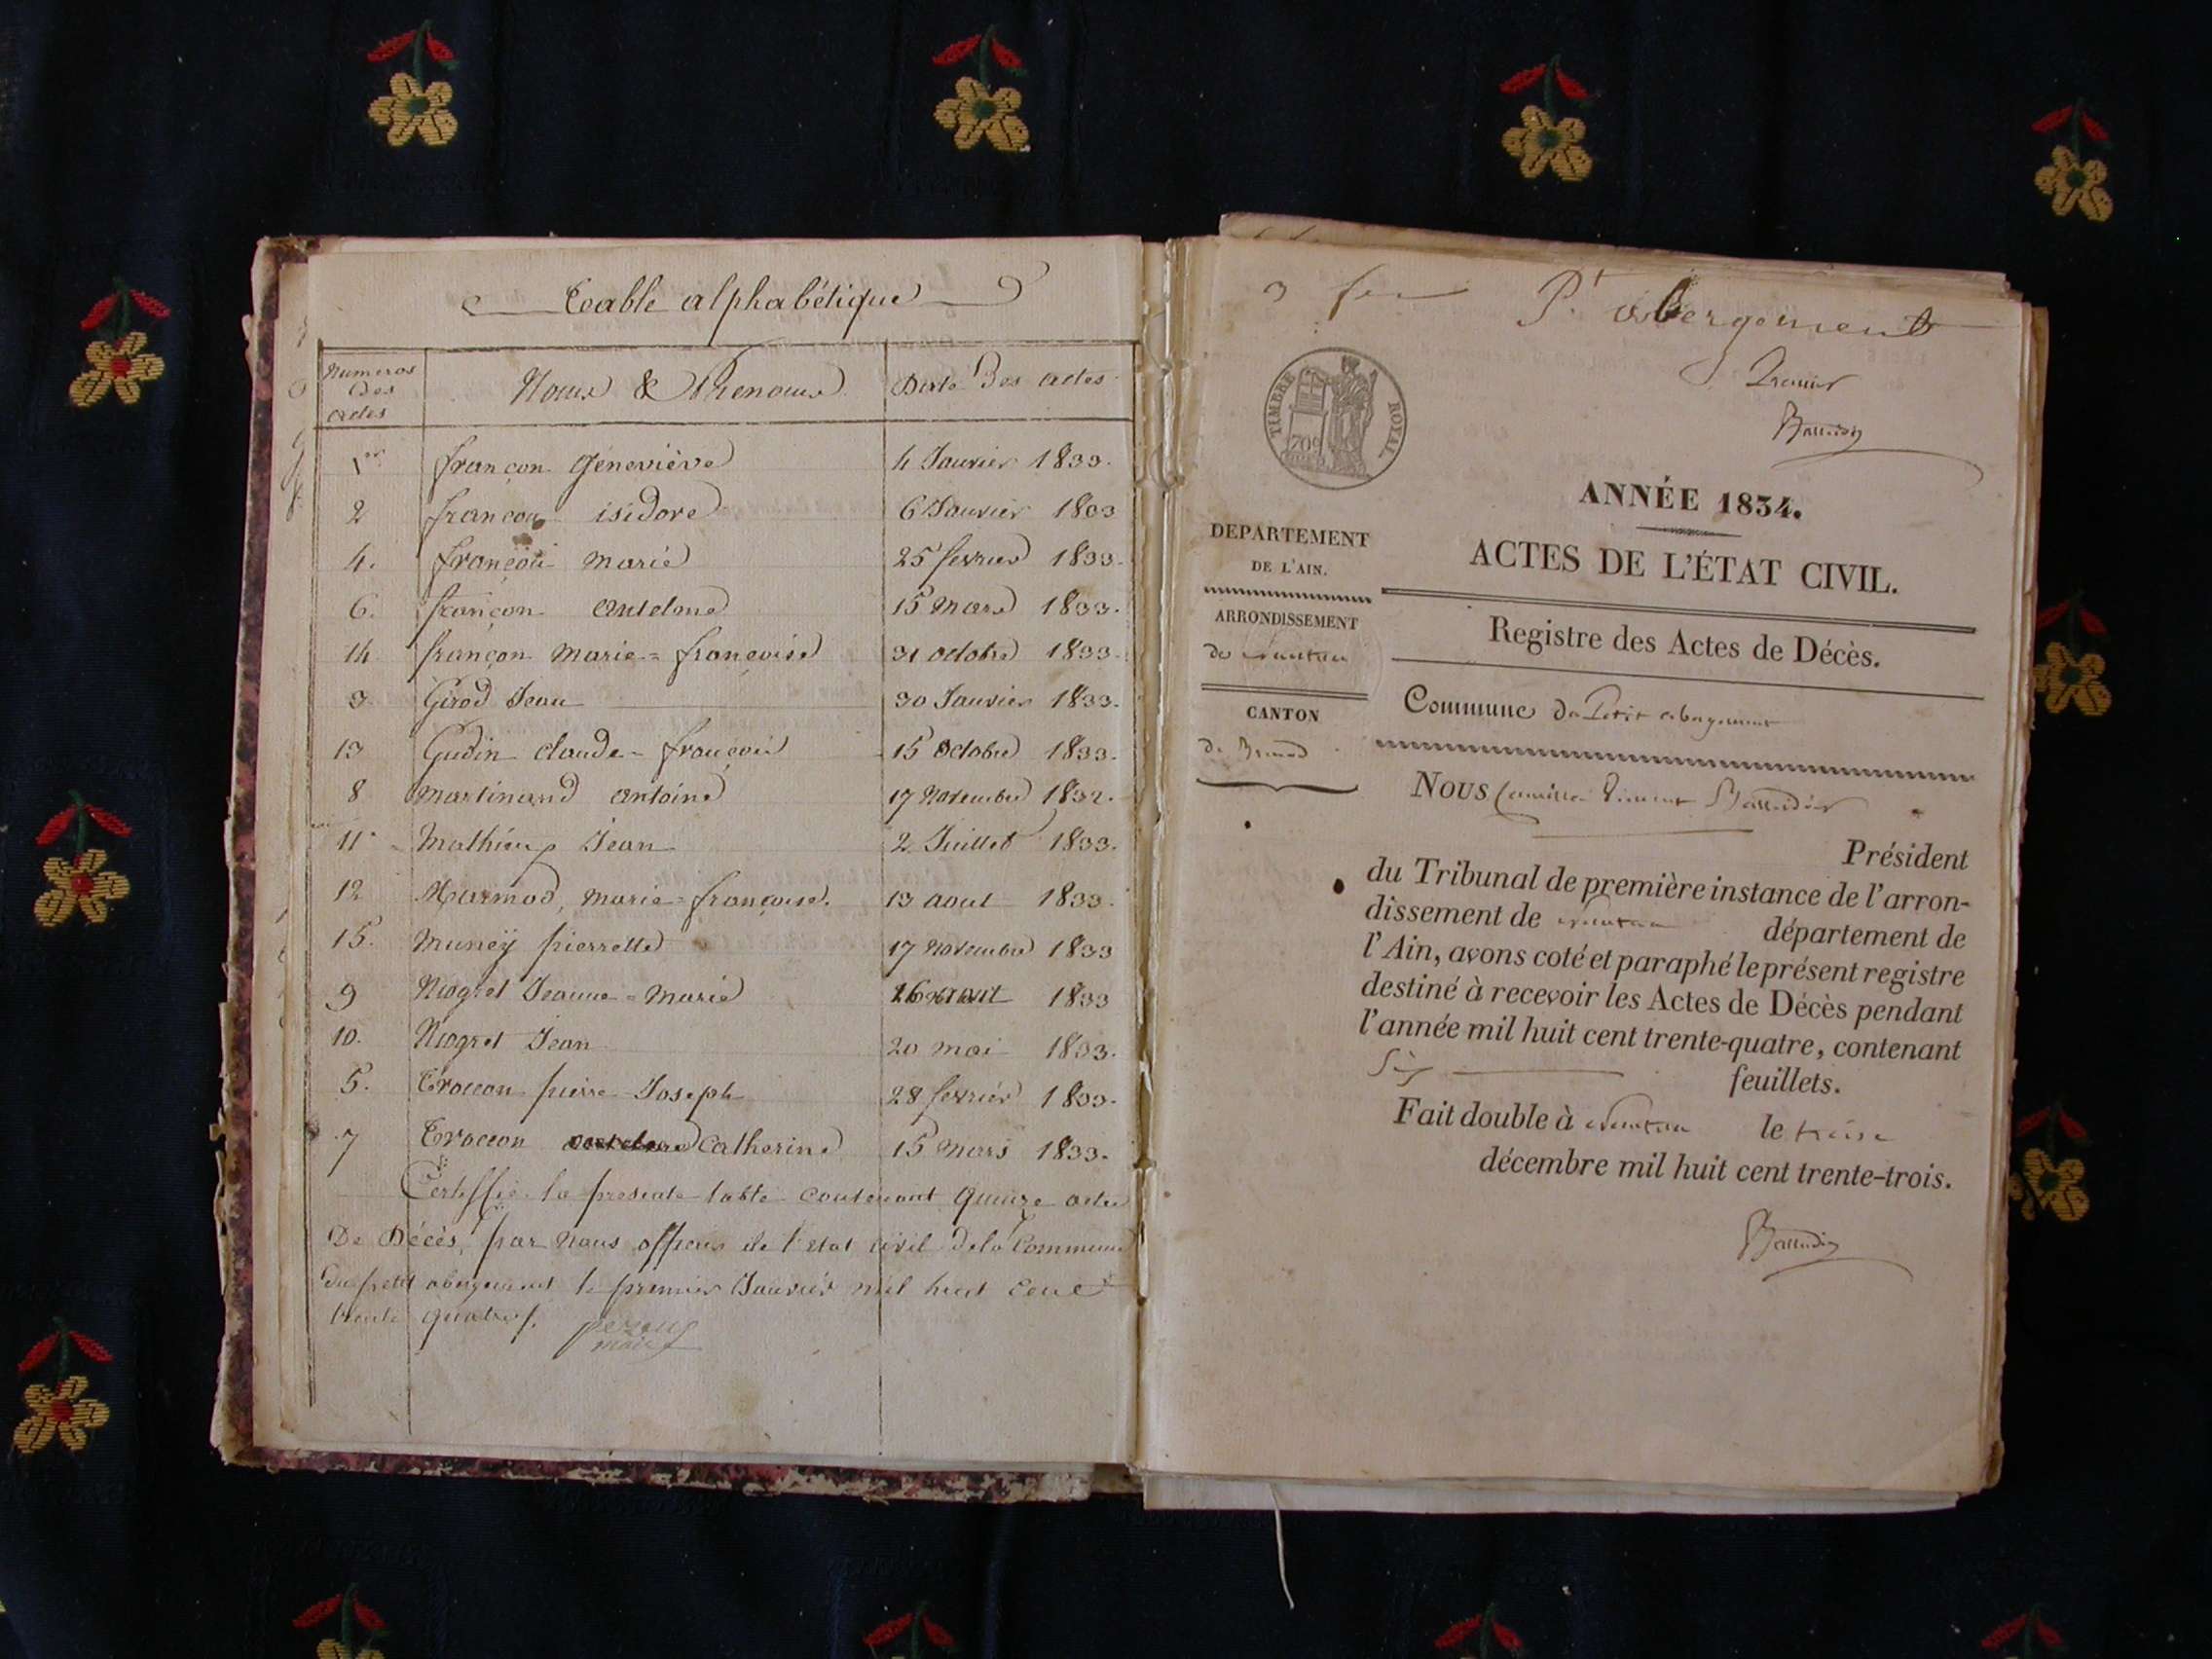 Table alphabétique
Numeros des actes Noms & Prenoms Date Des actes
1er françon Géneviève 4 Janvier 1833.
2 françon isidore 6 Janvier 1833
4. françon marie 25 fevrier 1833.
6. françon antelme 15 mars 1833.
14 françon Marie=françoise 31 octobre 1833.
3 Girod Jean 30 Janvier 1833.
13 Gudin claude=françois 15 octobre 1833.
8 Martinand antoine 17 Novembre 1832.
11 Mathieu Jean 2 Juillet 1833.
12 Marmod, marie=françoise. 13 aout 1833.
15. Muney pierrette 17 Novembre 1833
9 Niogret Jeanne=Marie 26 1833
10. Niogret Jean 20 mai 1833.
5. Troccon pierre Joseph 28 fevrier 1833.
7 Troccon Catherine 15 mars 1833.
Certiffié la presente table contenant quinze actes
De Décès, par Nous officier de l'état civil de la Commune
du petit abergement le premier Janvier mil huit cent
trente quatre.
maire
Pt abergement
Premier
TIMBRE ROYAL
70c
ANNÉE 1834.
ACTES DE L'ÉTAT CIVIL.
DEPARTEMENT
DE L'AIN.
ARRONDISSEMENT
de Nantua
CANTON
de Brenod
Registre des Actes de Décès.
Commune du Petit abergement
Nous Camille Vincent
Président
du Tribunal de première instance de l'arron-
dissement de Nantua département de
l'Ain, avons coté et paraphé le présent registre
destiné à recevoir les Actes de Décès pendant
l'année mil huit cent trente-quatre, contenant
Six feuillets.
Fait double à Nantua le treize
décembre mil huit cent trente-trois.